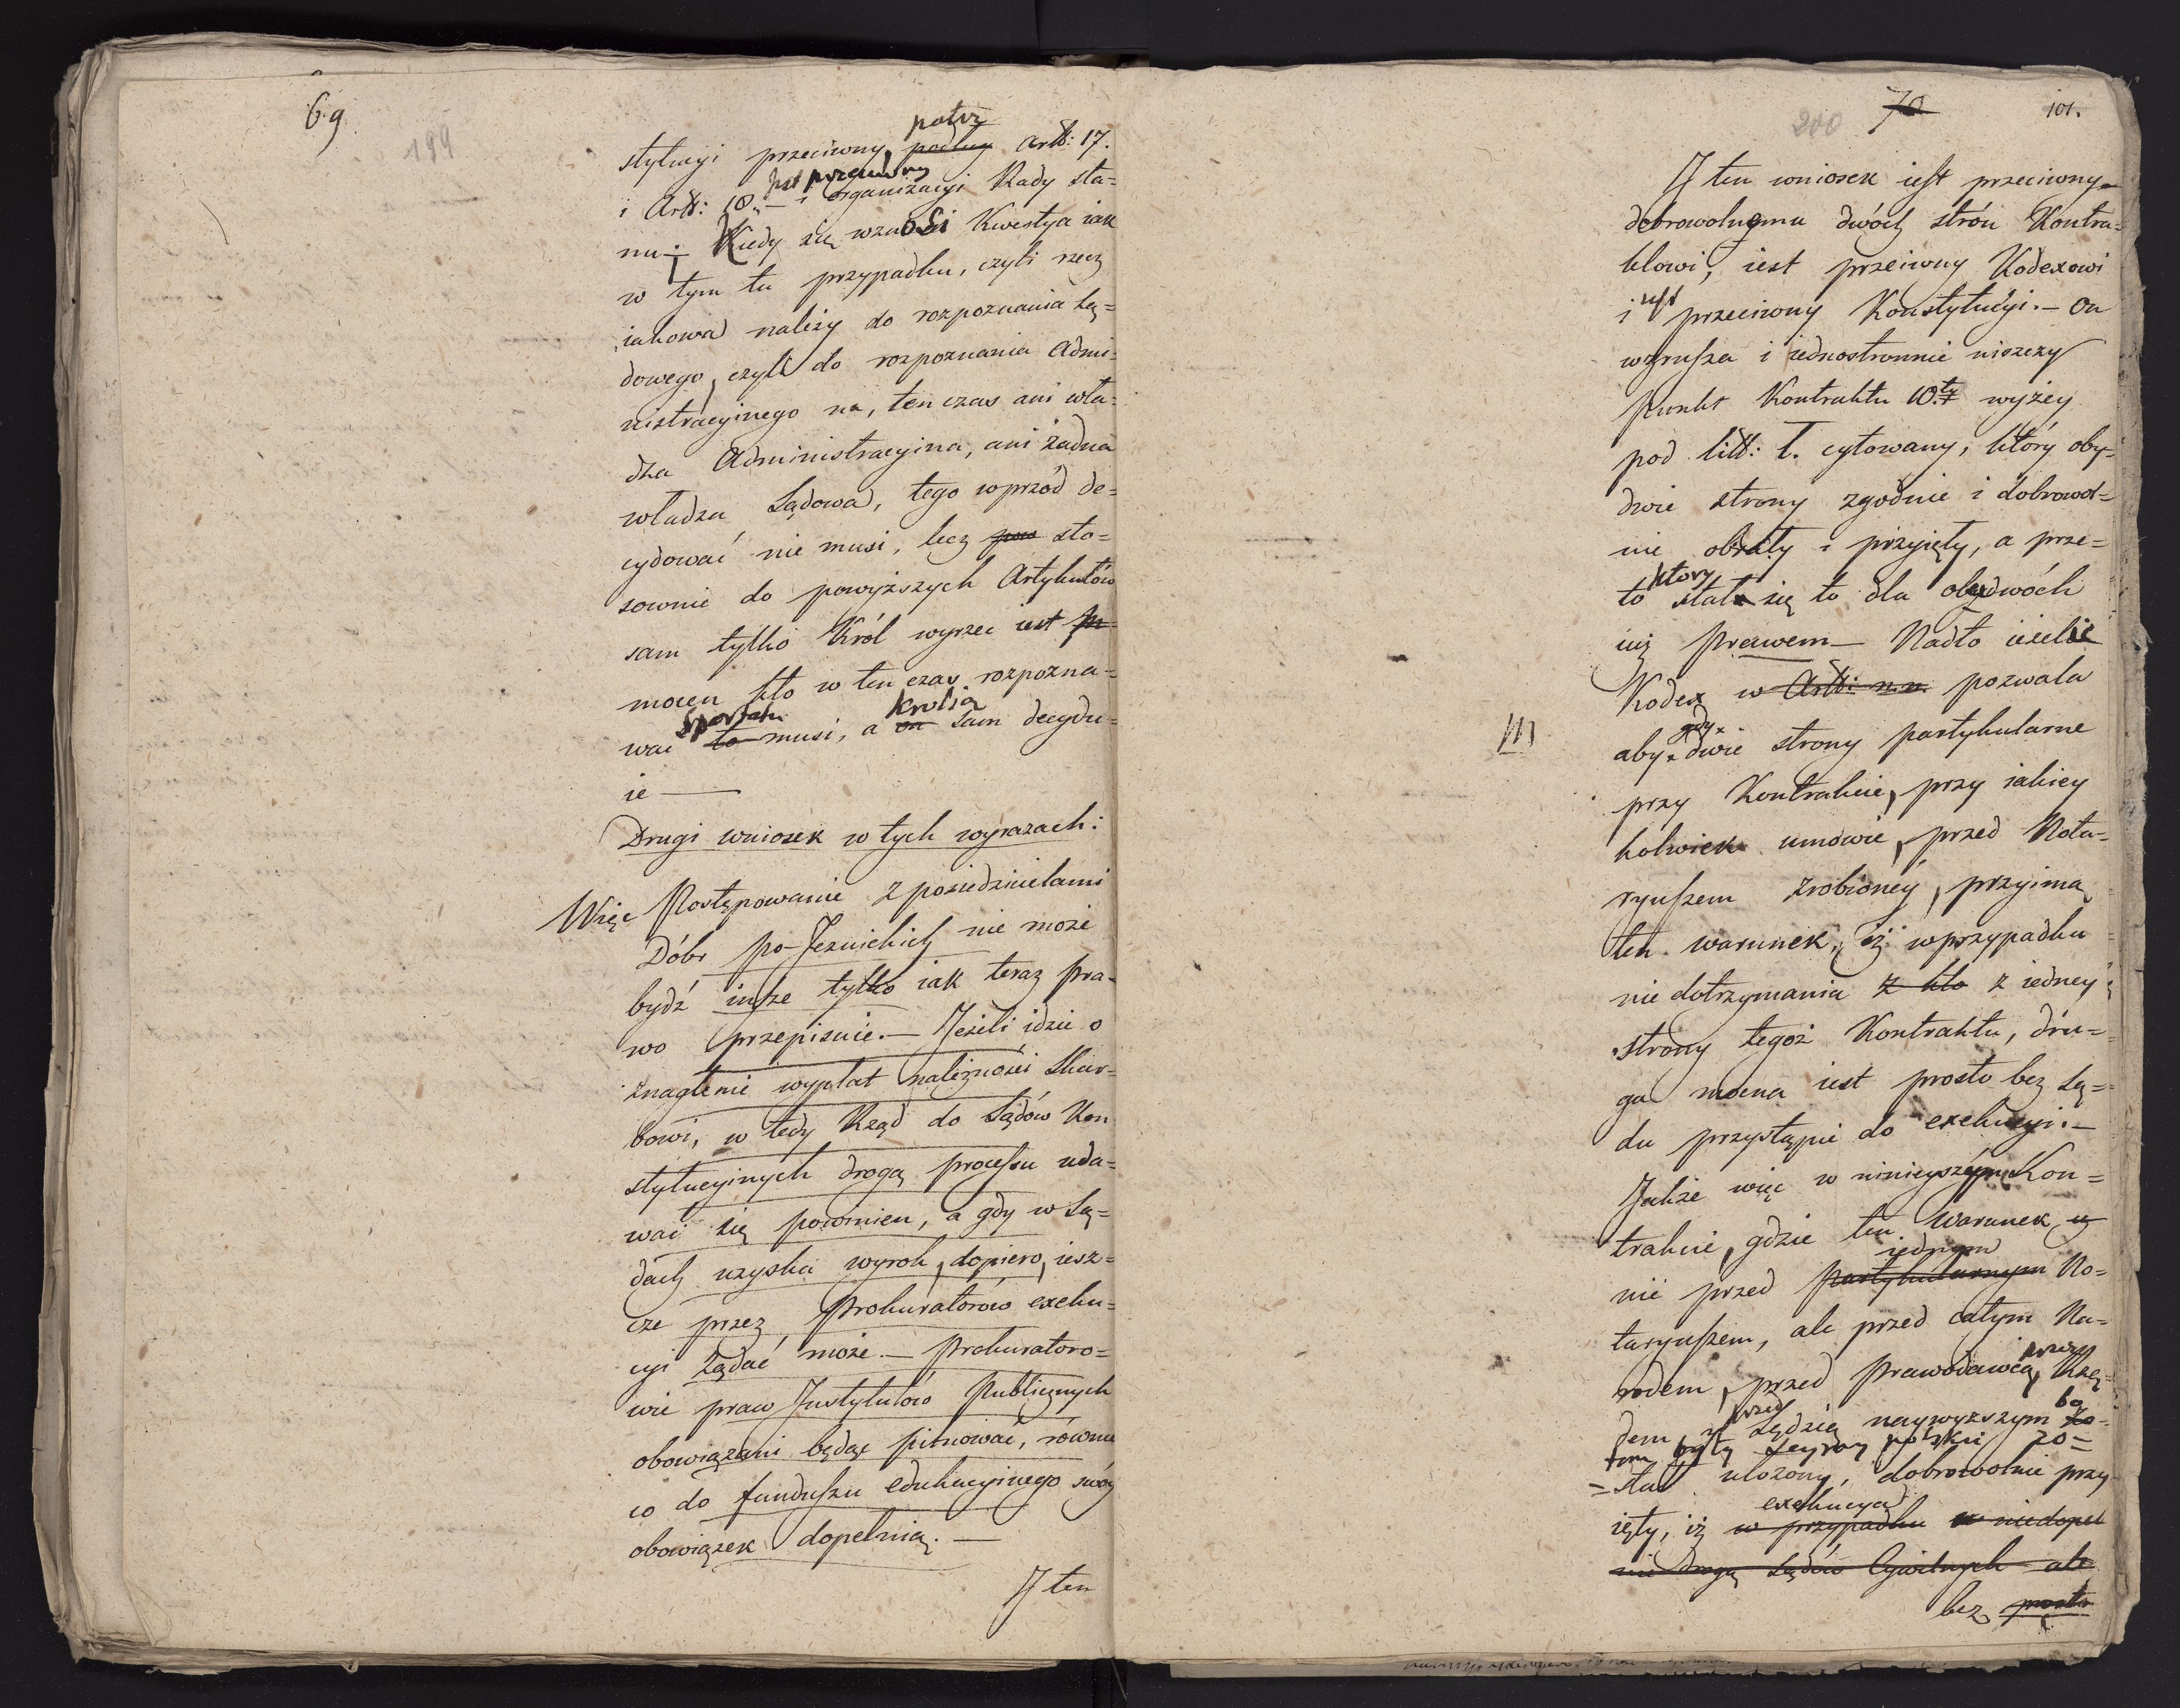 69
199
patrz
stytucyi przeciwny podług Artt: 17.
jest przeciwny
i Artt: 10. – i organizacyi Rady sta=
nu – Kiedy się wznosi Kwestya iak
w tym tu przypadku, czyli rzecz
iakowa należy do rozpoznania Są=
dowego, czyli do rozpoznania Admi=
nistracyinego na, ten czas ani wła=
dza Administracyina, ani żadna
władza Sądowa, tego wprzód de=
cydować nie musi, lecz sto=
sownie do powyższych Artykułów
sam tylko Król wyrzec iest
mocen kto w ten czas rozpozna=
Królią
wać to musi, a on sam decydu=
ie —
Drugi wniosek w tych wyrazach:
Więc Postępowanie z posiedzicielami
Dóbr po-Jezuickich nie może
bydź insze tylko iak teraz pra=
wo przepisuie. – Jeżeli idzie o
znaglenie wypłat należności Skar=
bowi, w tedy Rząd do Sądów Kon
stytucyinych drogą processu uda=
wać się powinien, a gdy w Są=
dach uzyska wyrok, dopiero, iesz=
cze przez Prokuratorów exeku=
cyi żądać może. – Prokuratoro=
wie praw Instytutów Publicznych
obowiązani będąc pilnować, równie
co do funduszu edukacyinego swóy
obowiązek dopełnią. —
I ten
200
70
101.
I ten wniosek iest przeciwny
dobrowolnemu dwóch strón Kontra=
ktowi, iest przeciwny Kodexowi
iest
i przeciwny Konstytucyi. – On
wzrusza i iednostronnie niszczy
punkt Kontraktu 10.ty wyżey
pod litt: l. cytowany, który oby=
dwie strony zgodnie i dobrowol=
nie obrały i przyięły, a prze=
który
to stał się to dla obydwóch
iuż prawem – Nadto ieżelić
Kodex w Artt: n.n. pozwala
gdy
aby dwie strony partykularne
przy Kontrakcie, przy iakiey
kolwiek umowie, przed Nota=
ryuszem zrobioney, przyimą
ten warunek, iż w przypadku
nie dotrzymania z kto z iedney
strony tegoż Kontraktu, dru=
ga mocna iest prosto bez Są=
du przystąpić do exekucyi. –
Jakże więc w ninieyszym Kon=
trakcie, gdzie ten warunek
iednym
nie przed partykularnym No=
taryuszem, ale przed całym Na=
rodem, przed Prawodawcą, przed Rzą=
przed
dem, Sędzią naywyższym bo
tem były Seymy polskie zo=
=stał ułożony, dobrowolnie przy
exekucya
ięty, iż w przypadku niedopeł
nie drogą Sądów Cywilnych ale
bez prosto